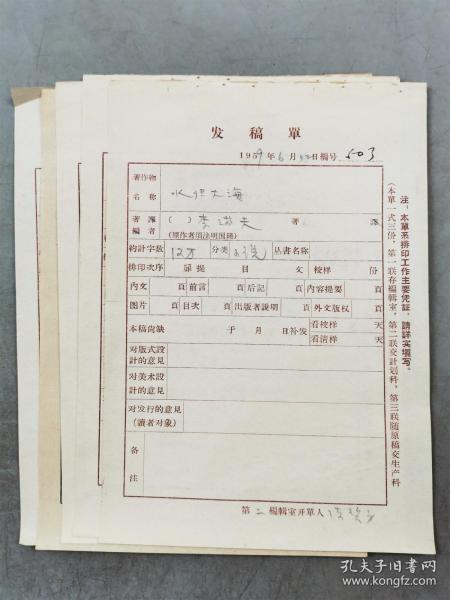 发稿單
1959年6月 日編号 503
著作物
名称
水 大海
著譯
編者
( ) 李 夫 著 譯
(原作者須注明国籍)
約計字数 12万 分类 小説 丛書名称
排印次序 扉 提 目 文 校样 份
內文 頁 前言 頁 后記 頁 內容提要 頁
图片 頁 目次 頁 出版者說明 頁 外文版权 頁
本稿尚缺 于 月 日补发 看校样 天
看清样 天
对版式設
計的意見
对美术設
計的意見
对发行的意見
(讀者对象)
备
注
第二編輯室开單人
注:本單系排印工作主要凭証,請詳实填写。
(本單一式三份,第一联存編輯室,第二联交計划科,第三联随原稿交生产科
孔夫子旧书网
www.kongfz.com